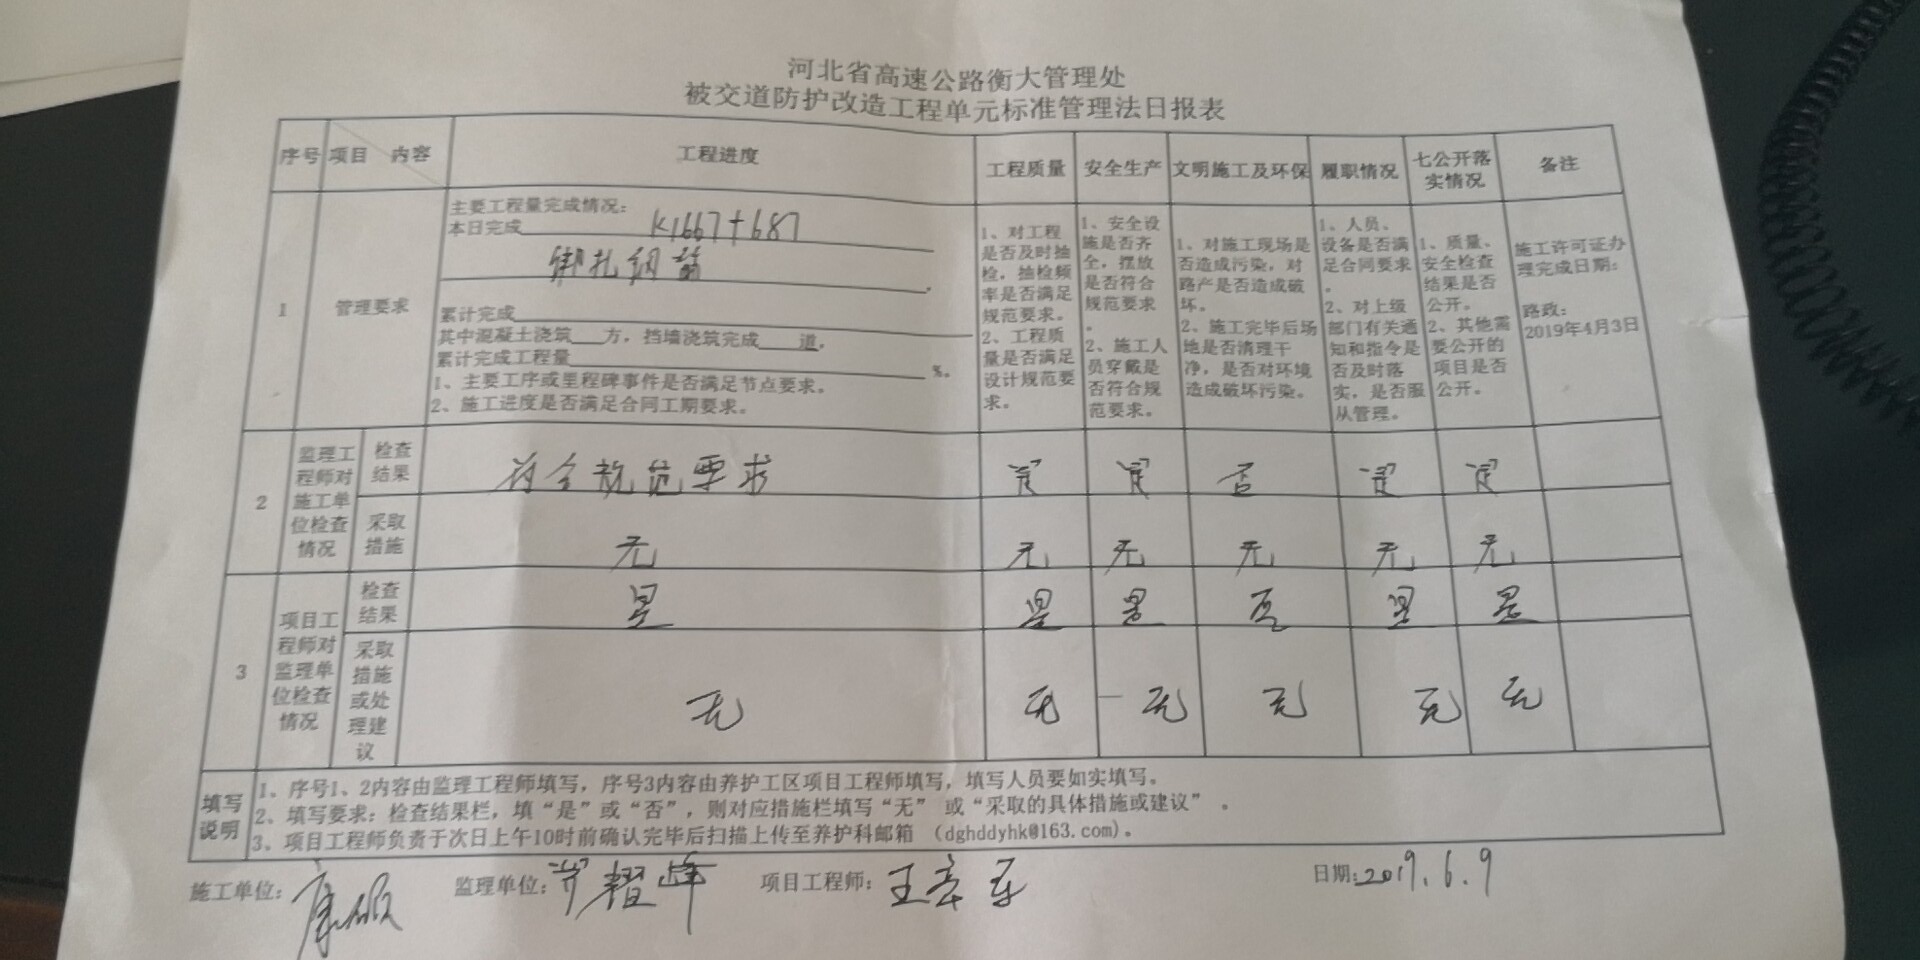 河北省高速公路衡大管理处
被交道防护改造工程单元标准管理法日报表
序号 项目 内容 工程进度 工程质量 安全生产 文明施工及环保 履职情况 七公开落实情况 备注
1 管理要求
主要工程量完成情况：
本日完成 K1667+687
绑扎钢筋。
累计完成
其中混凝土浇筑 方，挡墙浇筑完成 道，
累计完成工程量 %。
1、主要工序或里程碑事件是否满足节点要求。
2、施工进度是否满足合同工期要求。
1、对工程
是否及时抽
检，抽检频
率是否满足
规范要求。
2、工程质
量是否满足
设计规范要
求。
1、安全设
施是否齐
全，摆放
是否符合
规范要求
。
2、施工人
员穿戴是
否符合规
范要求。
1、对施工现场是
否造成污染，对
路产是否造成破
坏。
2、施工完毕后场
地是否清理干
净，是否对环境
造成破坏污染。
1、人员、
设备是否满
足合同要求
。
2、对上级
部门有关通
知和指令是
否及时落
实，是否服
从管理。
1、质量、
安全检查
结果是否
公开。
2、其他需
要公开的
项目是否
公开。
施工许可证办
理完成日期：
路政：
2019年4月3日
2 监理工程师对施工单位检查情况
检查结果 符合规范要求 是 是 否 是 是
采取措施 无 无 无 无 无 无
3 项目工程师对监理单位检查情况
检查结果 是 是 是 否 是 是
采取措施或处理建议 无 无 无 无 无 无
填写说明
1、序号1、2内容由监理工程师填写，序号3内容由养护工区项目工程师填写，填写人员要如实填写。
2、填写要求：检查结果栏，填“是”或“否”，则对应措施栏填写“无”或“采取的具体措施或建议”。
3、项目工程师负责于次日上午10时前确认完毕后扫描上传至养护科邮箱（dghddyhk@163.com）。
施工单位： 监理单位： 项目工程师： 日期：2019.6.9